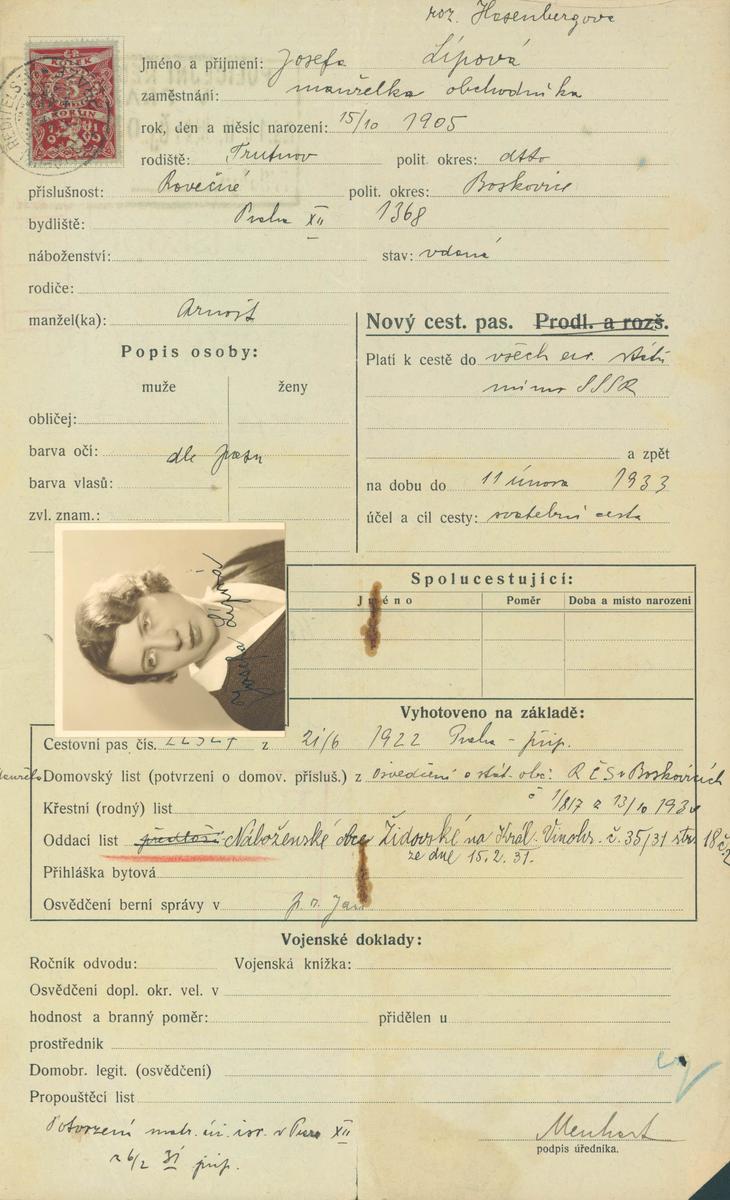 roz. Hasenbergova
Jméno a příjmení: Josefa Lípová
zaměstnání: manželka obchodníka
rok, den a měsíc narození: 15/10 1905
rodiště: Trutnov polit. okres: dtto
příslušnost: Rovečné polit. okres: Boskovice
bydliště: Praha XII 1368
náboženství: stav: vdaná
rodiče:
manžel(ka): Arnošt
Nový cest. pas. Prodl. a rozš.
Popis osoby:
Platí k cestě do všech eur. států
muže ženy
mimo SSSR
obličej:
barva očí: dle pasu
a zpět
barva vlasů:
na dobu do 11 února 1933
zvl. znam.:
účel a cíl cesty: svatební cesta
Josefa Lípová
Spolucestující:
Jméno Poměr Doba a misto narozeni
Vyhotoveno na základě:
Cestovní pas čís. z 21/6 1922 Praha - přip.
Domovský list (potvrzení o domov. přísluš.) z osvědčení o stát. obč. RČS v Boskovicích
Křestní (rodný) list č 1/817 z 13/10
Oddací list předloží Náboženské obce Židovské na Král. Vinohr. č. 35/31 str. 18
ze dne 15.2.31.
Přihláška bytová
Osvědčení berní správy v
Vojenské doklady:
Ročník odvodu: Vojenská knížka:
Osvědčení dopl. okr. vel. v
hodnost a branný poměr: přidělen u
prostředník
Domobr. legit. (osvědčení)
Propouštěcí list
Potvrzení matr. úř. isr. v Praze XII
z 6/2 31 přip.
Menhart
podpis úředníka.